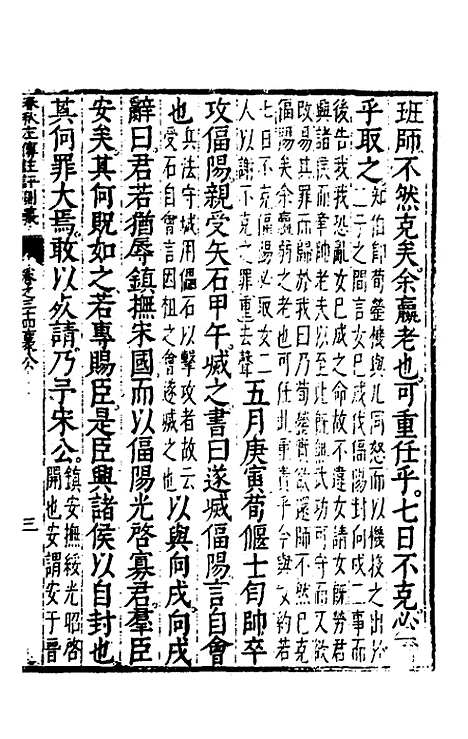 班師不然克矣余羸老也可重任乎七日不克必
乎取之
知伯卽荀罃機與几同怒而以機投之出於
二子之間言女巳成伐偪陽封向戌二事而
後告我我恐亂女巳成之命故不違女請女旣勞君
興諸侯而牽帥老夫以至此旣無武功可守而又欲
改易其罪而歸於我曰乃荀罃所欲還師不然巳克
偪陽矣余羸弱之老也可任此重責乎今與女約若
七日不克偪陽必取女二
人以謝不克之罪重去聲
五月庚寅荀偃士匄帥卒
攻偪陽親受矢石甲午滅之書曰遂滅偪陽言自會
也
兵法守城用石以擊攻者故云
受石自會言因柤之會遂滅之也
以與向戌向戌
辭曰君若猶辱鎮撫宋國而以偪陽光啓寡君羣臣
安矣其何貺如之若專賜臣是臣興諸侯以自封也
其何罪大焉敢以死請乃予宋公
鎮安撫綏光昭啓
開也安謂安于晋
春秋左傳註評測義
卷之三十四襄公
三